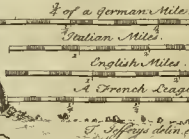 of a German Mile
Italian Miles.
English Miles.
A French Leag
T. Jefferys delin